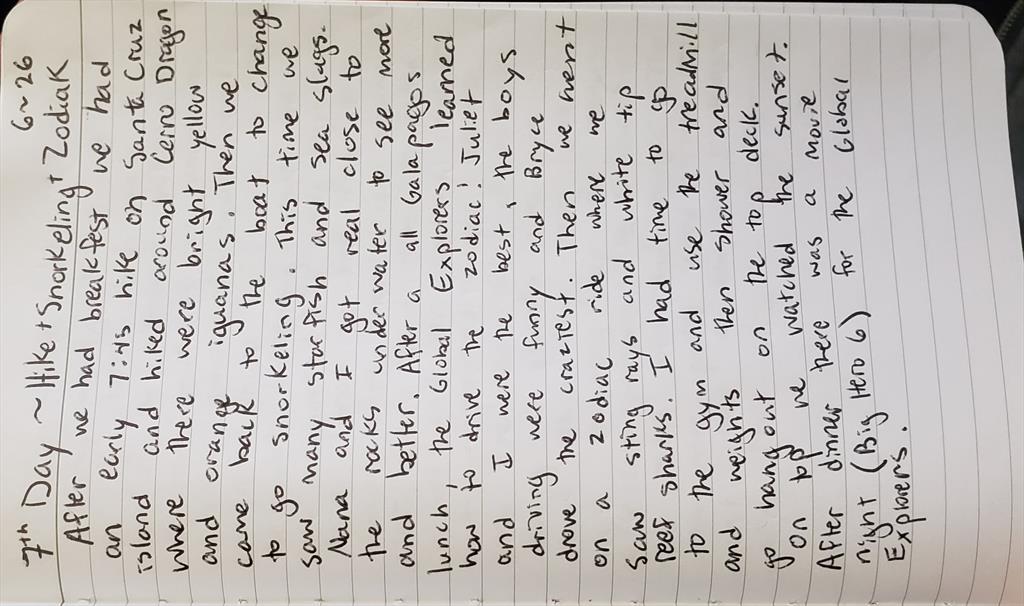 7th Day ~ Hike + Snorkeling + Zodiak 6~26
After we had breakfest we had
an early 7:45 hike on Santa Cruz
island and hiked around Cerro Dragon
where there were bright yellow
and orange iguanas. Then we
came back to the boat to change
to go snorkeling. This time we
saw many starfish and sea slugs.
Nana and I got real close to
the rocks under water to see more
and better. After a all Galapagos
lunch, the Global Explorers learned
how to drive the zodiac! Juliet
and I were the best, the boys
driving were funny and Bryce
drove the craziest. Then we went
on a zodiac ride where we
saw sting rays and white tip
reef sharks. I had time to go
to the gym and use the treadmill
and weights then shower and
go hang out on the top deck.
On top we watched the sunset.
After dinner there was a movie
night (Big Hero 6) for the Global
Explorers.